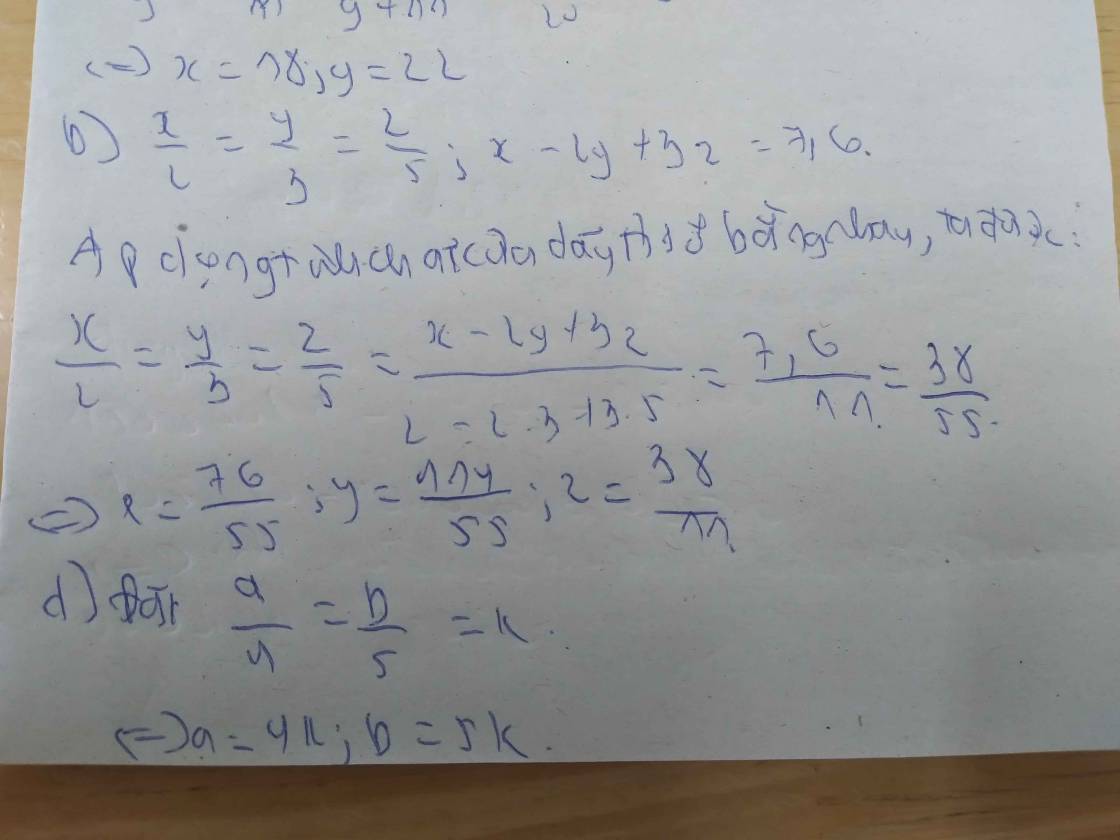 <=> x = 18; y = 22
b) x/2 = y/3 = z/5; x - 2y + 3z = 7,6.
Áp dụng tính chất của dãy tỉ số bằng nhau, ta được:
x/2 = y/3 = z/5 = (x - 2y + 3z)/(2 - 2.3 + 3.5) = 7,6/11 = 38/55.
<=> x = 76/55; y = 114/55; z = 38/11.
d) Đặt a/4 = b/5 = k.
<=> a = 4k; b = 5k.